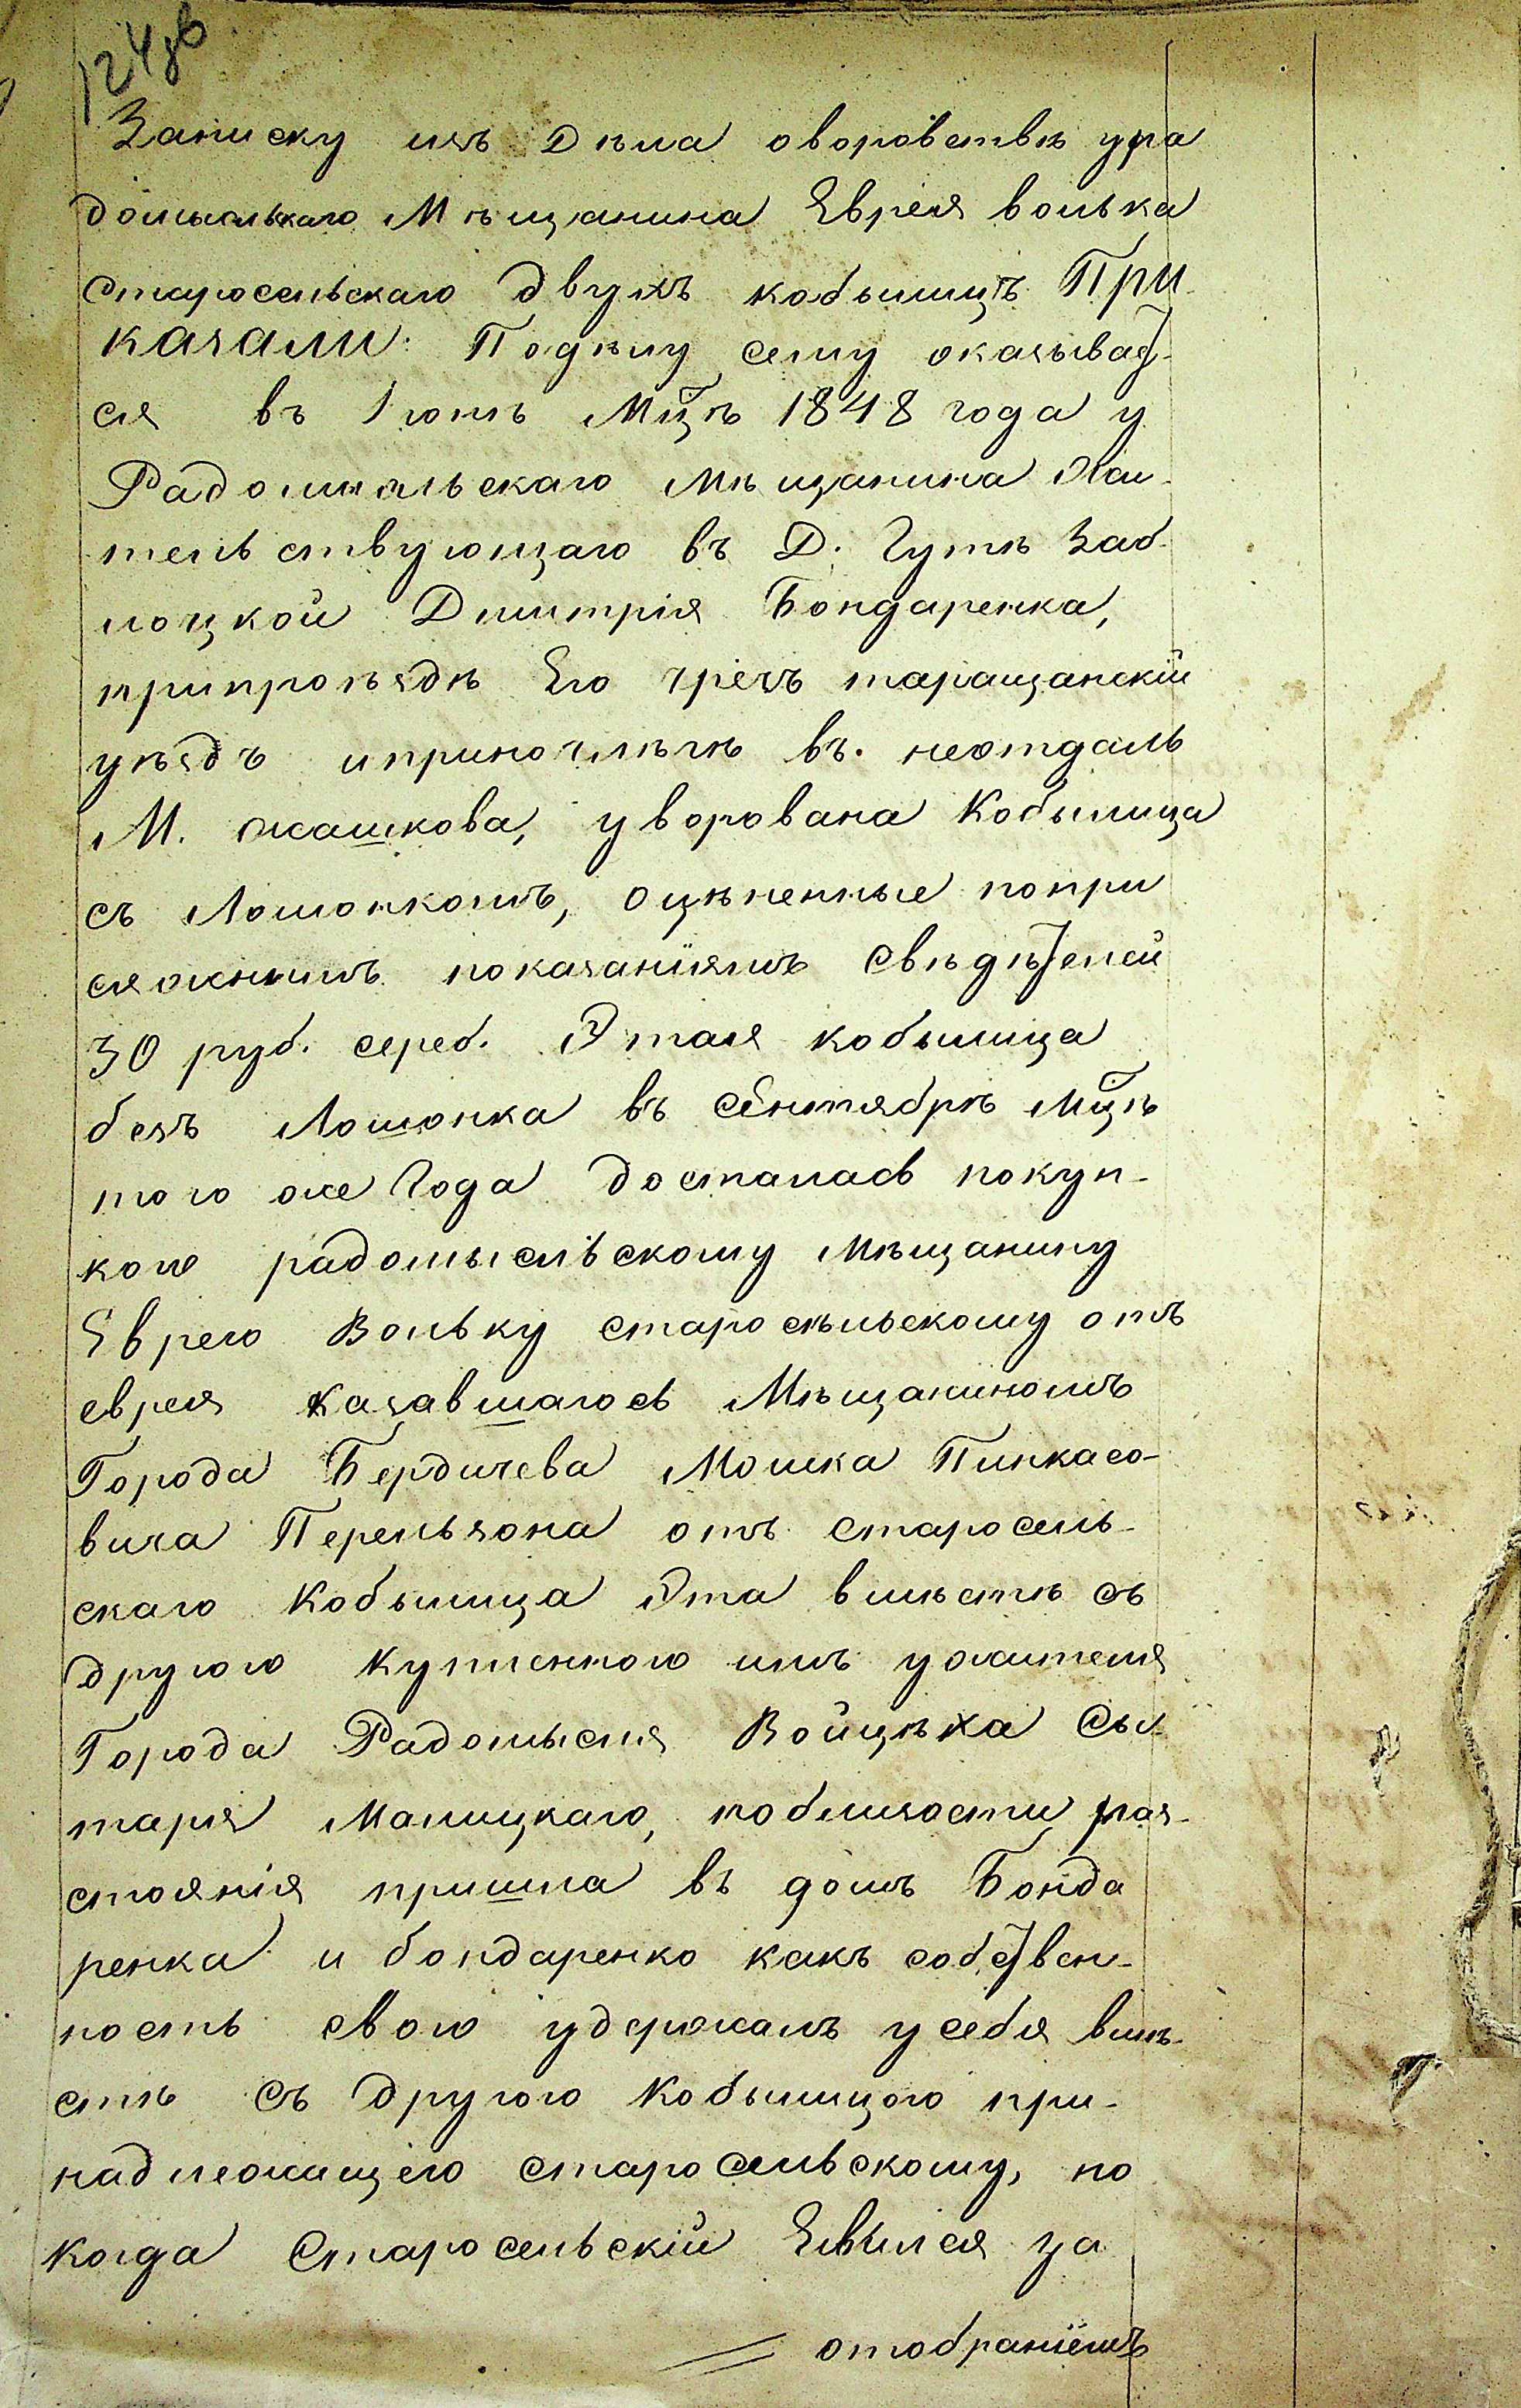 124об
Записку изъ Дѣла оворовствѣ ура
домысльскаго Мѣщанина Еврея волька
Старосельскаго двухъ кобылицъ При
казали: Подѣлу сему оказывает-
ся въ Іюнѣ Мцѣ 1848 года у
Радомысльскаго мѣщанина Жи-
тельствующаго въ Д. Гутѣ Заб-
лоцкой Дмитрія Бондаренка,
припроѣздѣ Его чрезъ таращанскій
уѣздъ иприночлѣгѣ въ. неотдаль
М. жашкова, уворована Кобылица
съ Лошонкомъ, оцѣненные попри
сяжнымъ показаніямъ свѣдѣтелей
30 руб. сереб. Этая кобылица
безъ Лошонка въ сентябрѣ мцѣ
того же Года досталась покуп-
кою радомысльскому мѣщанину
Еврею Вольку старосѣльскому отъ
еврея казавшагось Мѣщаниномъ
Города Бердичева Мошка Пинкасо-
вича Перельзона отъ старосель-
скаго Кобылица Эта вмѣстѣ съ
другою купленною имъ ужителя
Города Радомысля Войцѣха Сы-
таря Малицкаго, поблизости раз-
стоянія пришла въ домъ Бонда
ренка и бондаренко какъ собствен-
ность свою удержалъ усебя вмѣ-
стѣ съ другою Кобылицою при-
надлежащею старосельскому, но
когда Старосельскій Евился за
отобраніемъ